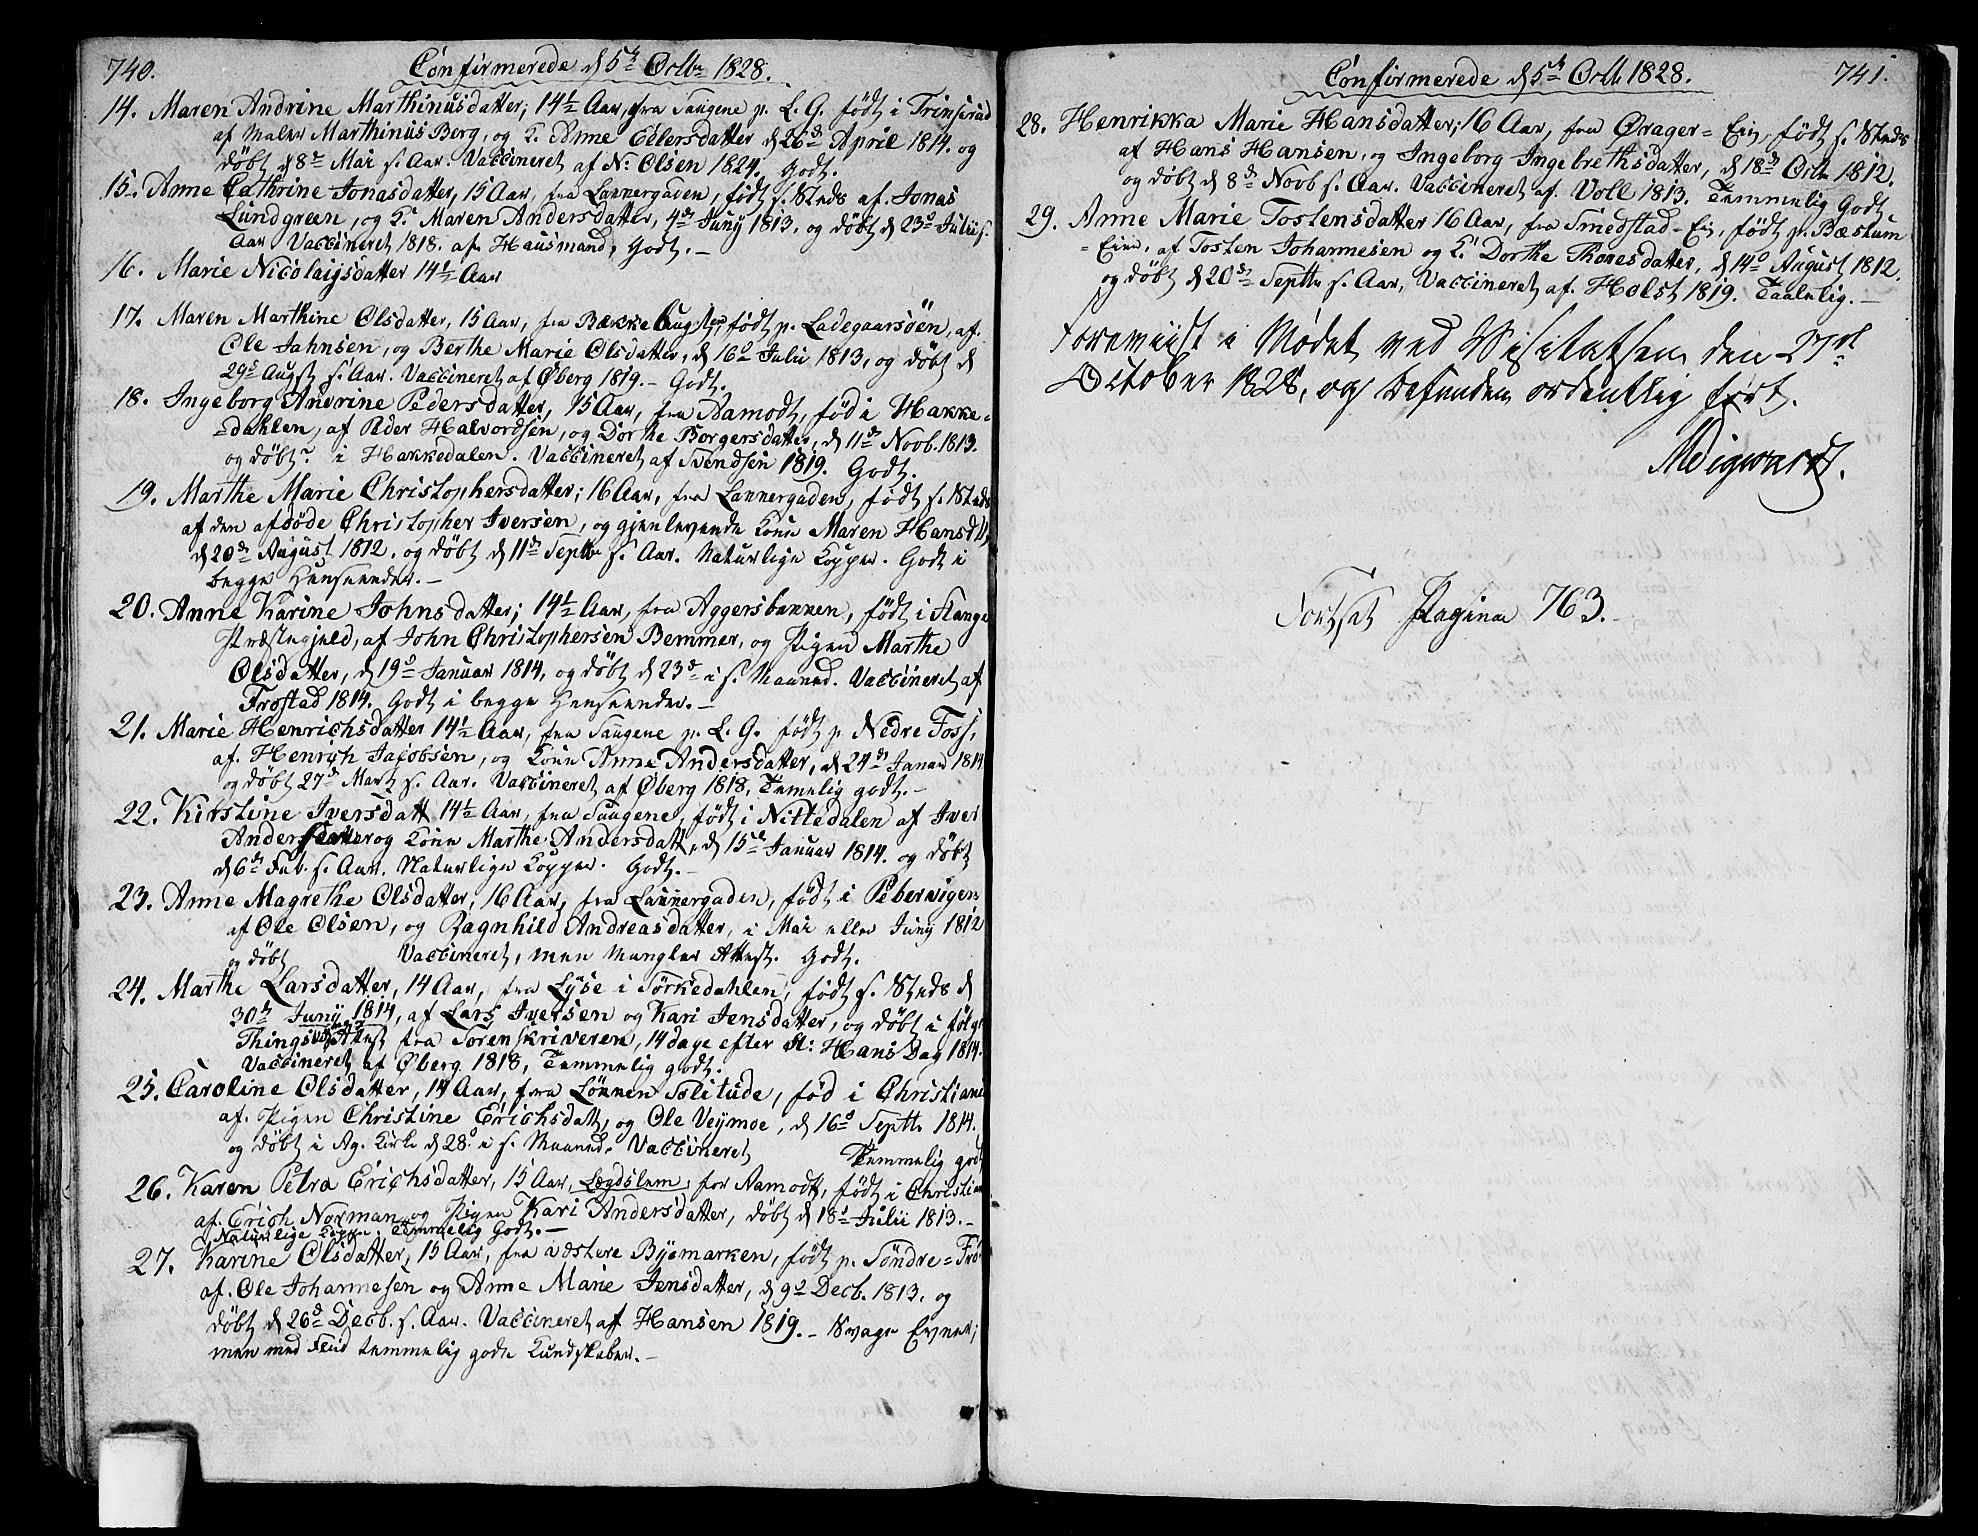 740.
Confirmerede d 5te Octbr 1828.
14. Maren Andrine Marthinusdatter; 14½ Aar, fra Saugene p. L. G. født i Trinserud
af Maler Marthinus Berg, og K. Anne Eilersdatter d 26de April 1814. og
døbt d 8de Mai s. Aar. Vaccineret af N: Olsen 1824. Godt.
15. Anne Cathrine Jonasdatter, 15 Aar, fra Lannergaden, født s. Steds af Jonas
Lundgreen, og K. Maren Andersdatter, 4de Juny 1813, og døbt d 23de Julii s.
Aar Vaccineret 1818. af Hausmand, Godt.–
16. Marie Nicolaijsdatter 14½ Aar
17. Maren Marthine Olsdatter, 15 Aar, fra Bække født p. Ladegaarsøen, af.
Ole Jahnsen, og Berthe Marie Olsdatter, d 16de Julii 1813, og døbt d
29de Augst s. Aar. Vaccineret af Øberg 1819.– Godt.
18. Ingeborg Andrine Pedersdatter, 15 Aar, fra Aamodt, fød i Hakke-
dahlen, af Peder Halvordsen, og Dorthe Borgersdatter, d 11te Novb. 1813.
og døbt? i Hakkedalen. Vaccineret af Svendsen 1819. Godt.
19. Marthe Marie Christophersdatter; 16 Aar, fra Lannergaden, født s. Steds
af den afdöde Christopher Iversen, og gjenlevende Kone Maren Hansdtt,
d 20de August 1812. og døbt d 11te Septbr s. Aar. Naturlige Kopper. Godt i
begge Henseender.–
20. Anne Karine Johnsdatter; 14½ Aar, fra Aggersbannen, født i Stange
Præstegjeld, af John Christophersen Bemmer, og Pigen Marthe
Olsdatter, d 19de Januar 1814, og døbt d 23de i s. Maaned. Vaccineret af
Frostad 1814. Godt i begge Henseender.–
21. Marie Henrichsdatter 14½ Aar, fra Saugene p. L. G. født p Nedre Foss,
af. Henrich Jacobsen, og Kone Anne Andersdatter, d 24de Januar 1814
og døbt 27de Marts s. Aar. Vaccineret af Øberg 1818, Temelig godt.–
22. Kirstine Iversdatt 14½ Aar, fra Saugene, født i Nittedalen af Iver
Andersen og Kone Marthe Andersdatt, d 15de Januar 1814. og døbt
d 6te Feb. s. Aar. Naturlige Kopper. Godt.–
23. Anne Magrethe Olsdatter, 16 Aar, fra Lannergaden, født i Pebervigen
af Ole Olsen, og Ragnhild Andreasdatter, i Mai eller Juny 1812
og døbt Vaccineret, men mangler Attest. Godt.
24. Marthe Larsdatter, 14 Aar, fra Lyse i Sørkedahlen, født s. Steds d
30te Juny 1814, af Lars Iversen og Kari Jensdatter, og døbt i følge
Things Attest fra Sorenskriveren, 14 dage efter St: Hans Dag 1814.
Vaccineret af Øberg 1818, Temmelig godt.
25. Caroline Olsdatter, 14 Aar, fra Lønnen Solitude, fød i Christiania
af. Pigen Christine Erichsdatt, og Ole Veymoe, d 16de Septbr 1814.
og døbt i Ag. Kirke d 28de i s. Maaned. Vaccineret Temmelig godt
26. Karen Petra Erichsdatter, 15 Aar, Lægdslem, for Aamodt, født i Christian
af. Erich Norman og Pigen Kari Andersdatter, døbt d 18de Julii 1813.–
Naturlige Kopper. Temmelig Godt.–
27. Karine Olsdatter, 15 Aar, fra vestere Byemarken, født p. Søndre=Frø
af. Ole Johannesen og Anne Marie Jensdatter, d 9de Decb. 1813. og
døbt d 26de Decb. s. Aar. Vaccineret af Hansen 1819.– Svage Evner;
men med Flid temmelig gode Kundskaber.–
Confirmerede d 5te Octb 1828.
741.
28. Henrikka Marie Hansdatter; 16 Aar, fra Ørager=Eie, født s. Steds
af Hans Hansen, og Ingeborg Ingebrethsdatter, d 18de Octbr 1812.
og døbt d 8de Novb s. Aar. Vaccineret af. Voll 1813. Temmelig Godt
29. Anne Marie Tostensdatter 16 Aar, fra Smedstad-Eie, født p. Bæstum
=Eie, af Tosten Johannesen og K. Dorthe Thoresdatter, d 14de August 1812.
og døbt d 20de Septbr s. Aar, Vaccineret af. Holst 1819. Taalelig.–
Foreviist i Mødet ved Visitatsen den 27de
October 1828, og befunden ordentlig ført.
Fortsat Pagina 763.